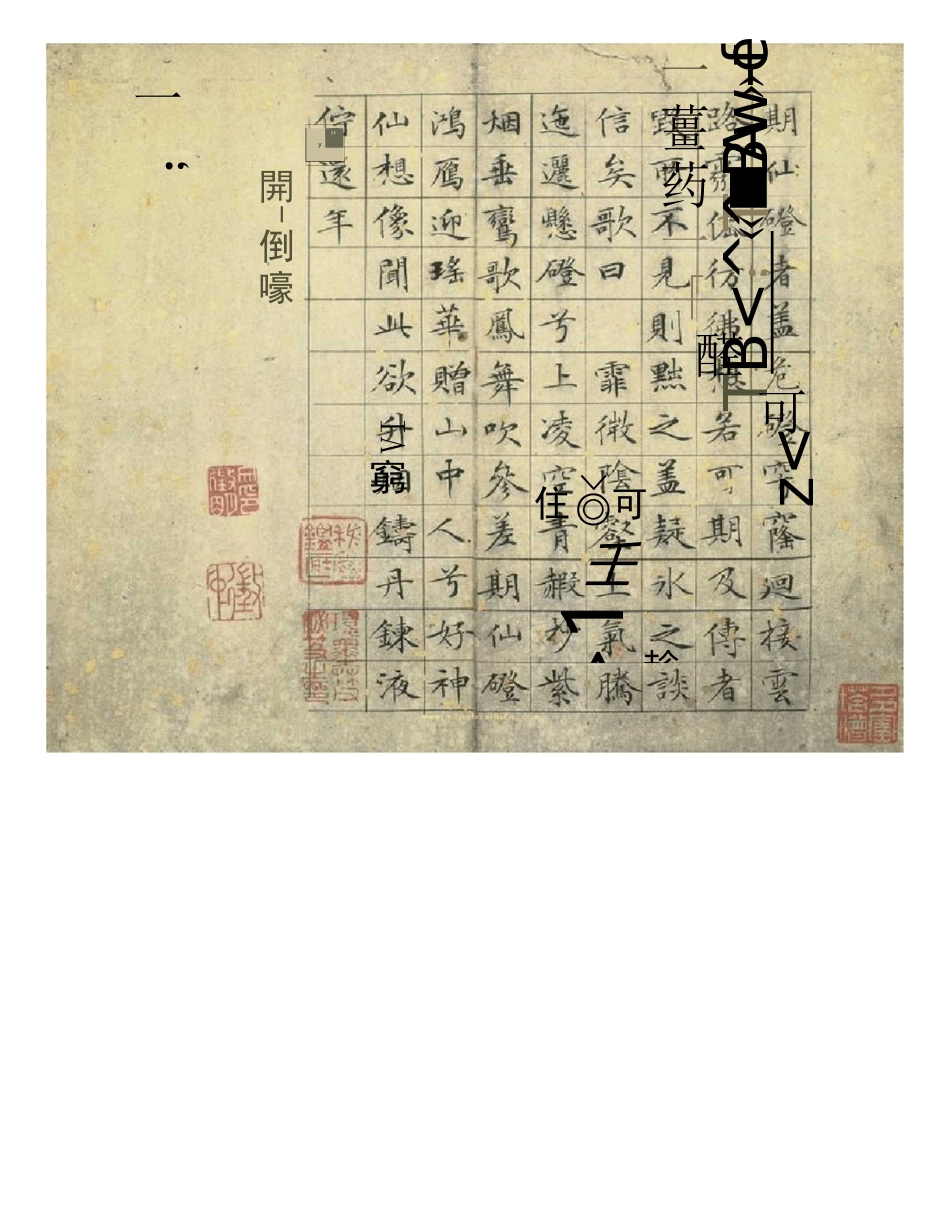 期仙磴者盖危磴穹窿迴接雲
路彷若可期及傳者
而不見則黜之盖疑氷之談
信矣歌曰 霏微陰壑氣騰
迤邐懸磴兮上凌空青赮杪紫
烟垂鸞歌鳳舞吹參差期仙磴
鴻鴈迎瑤華贈山中人兮好神
仙想像聞此欲升鑄丹鍊液
佇還年
薑药
可
住◎可
窮
開-倒嚎
一